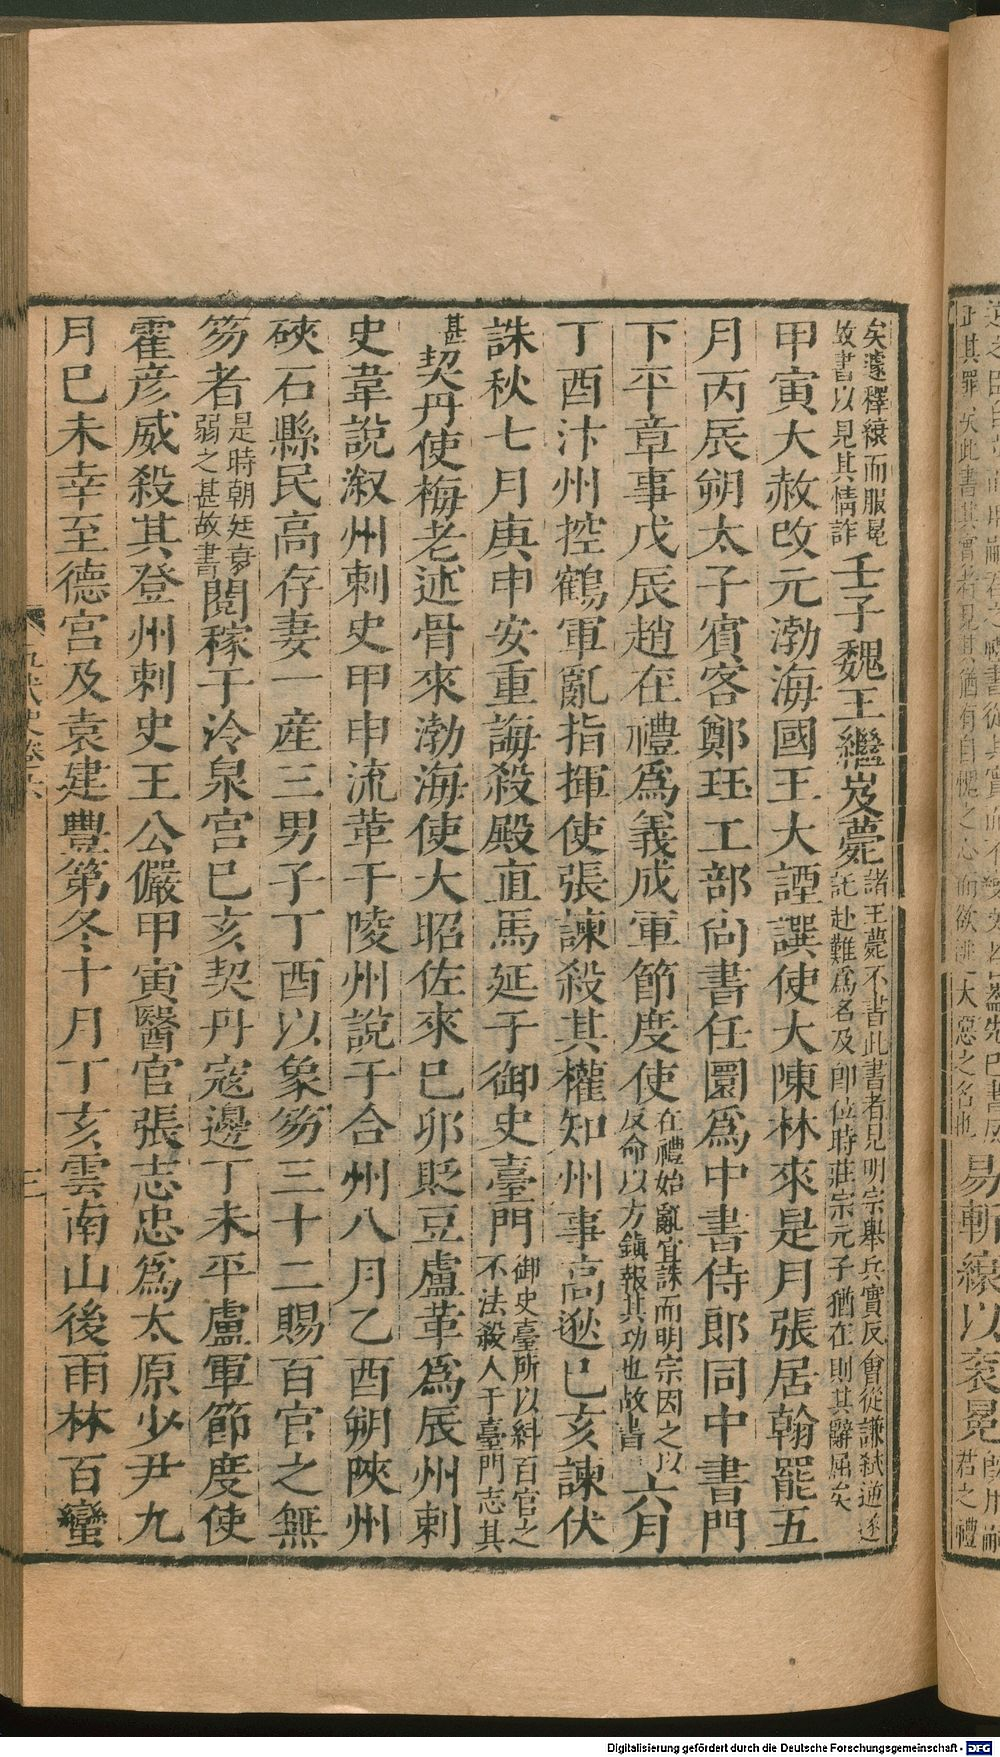 矣遽釋縗而服冕故書以見其情詐壬子魏王繼岌薨諸王薨不書此書者見明宗舉兵實反會從謙弒逆遂託赴難爲名及卽位時莊宗元子猶在則其辭屈矣
甲寅大赦改元渤海國王大諲譔使大陳林來是月張居翰罷五
月丙辰朔太子賓客鄭珏工部尙書任圜爲中書侍郎同中書門
下平章事戊辰趙在禮爲義成軍節度使在禮始亂宜誅而明宗因之以反命以方鎮報其功也故書六月
丁酉汴州控鶴軍亂指揮使張諫殺其權知州事高逖巳亥諫伏
誅秋七月庚申安重誨殺殿直馬延于御史臺門御史臺所以糾百官之不法殺人于臺門志其
甚契丹使梅老述骨來渤海使大昭佐來巳卯貶豆盧革爲辰州刺
史韋說溆州刺史甲申流革于陵州說于合州八月乙酉朔陝州
硤石縣民高存妻一產三男子丁酉以象笏三十二賜百官之無
笏者是時朝廷衰弱之甚故書閱稼于冷泉宮巳亥契丹寇邊丁未平盧軍節度使
霍彥威殺其登州刺史王公儼甲寅醫官張志忠爲太原少尹九
月巳未幸至德宮及袁建豐第冬十月丁亥雲南山後兩林百蠻
五代史卷六
三
易斬縗以袞冕
君之禮
正其罪
大惡之名也
Digitalisierung gefördert durch die Deutsche Forschungsgemeinschaft - DFG